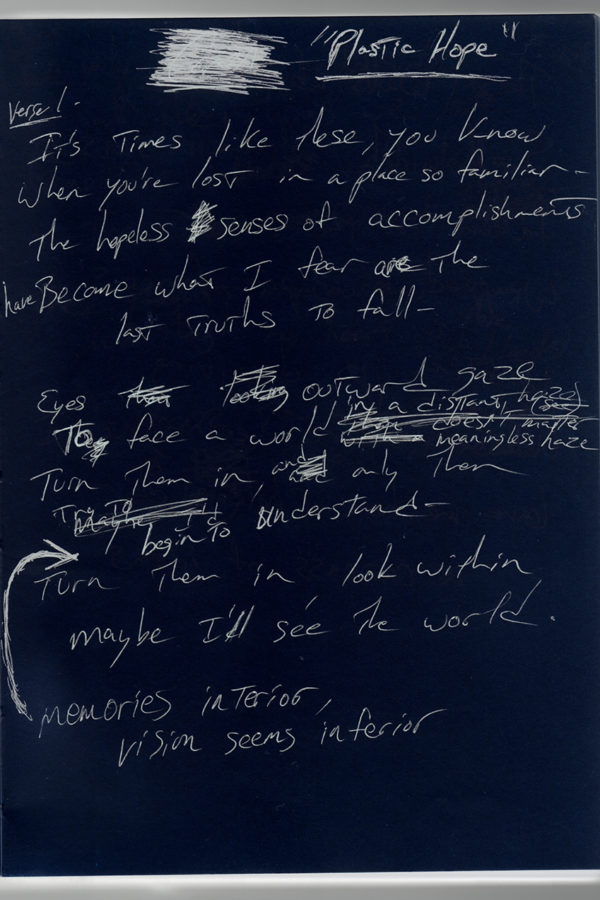 "Plastic Hope"
Verse 1 -
It's Times like these, you know
when you're lost in a place so familiar -
The hopeless senses of accomplishments
have Become what I fear are the
last Truths To fall -
Eyes outward gaze
To face a world
meaningless haze
Turn Them in, and only Then
Try To
I begin To understand -
Turn Them in, look within
maybe I'll see The world.
memories inTerior,
vision seems inferior